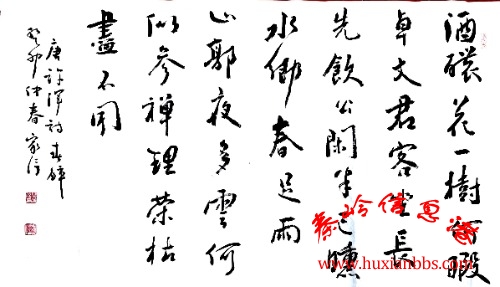 酒醲花一樹何暇
卓文君客坐長
先飲公閑半已曛
水鄉春足雨
山郭夜多雲何
似參禪理榮枯
盡不聞
唐許渾詩春醉
癸卯仲春家信
www.huxianbbs.com